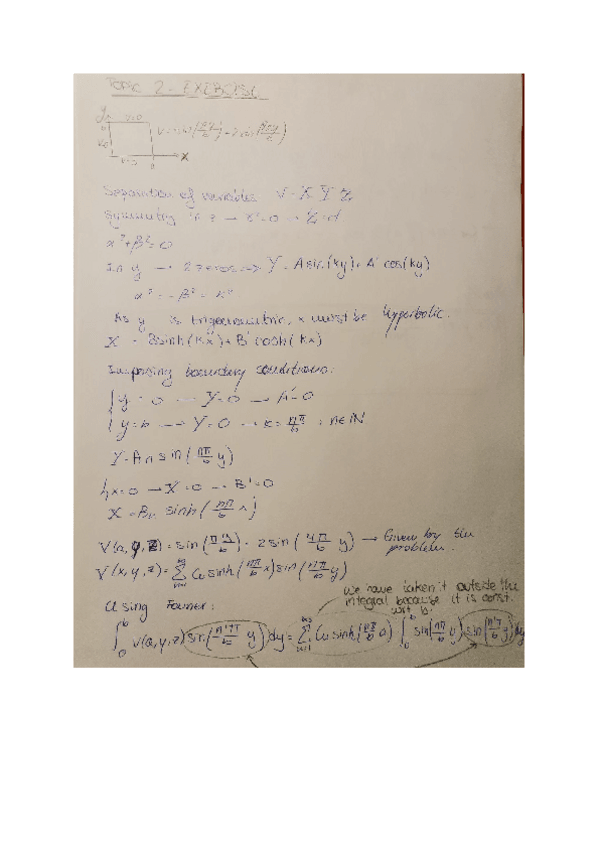 TOPIC 2 - EXERCISE
y
b
x
Separation of variables V = X Y Z
Symmetry in z → γ²=0 → Z=ct
α²+β²=0
In y → 2 zeros → Y = A sin(ky) + A' cos(ky)
α² = -β² = k²
As y is trigonometric, x must be hyperbolic.
X = B sinh(kx) + B' cosh(kx)
Imposing boundary conditions:
y = 0 → Y=0 → A'=0
y=b → Y=0 → k = nπ/b ; n∈N
Y = An sin(nπ/b y)
x=0 → X=0 → B'=0
X = Bn sinh(nπ/b x)
→ Given by the
problem.
V(x,y,z) = ∑ Cn sinh(nπ/b x) sin(nπ/b y)
We have taken it outside the
integral because it is const.
Using Fourier:
∫₀ᵇ V(a,y,z) sin(n'π/b y) dy = ∑ Cn sinh(nπ/b a) ∫₀ᵇ sin(nπ/b y) sin(n'π/b y) dy